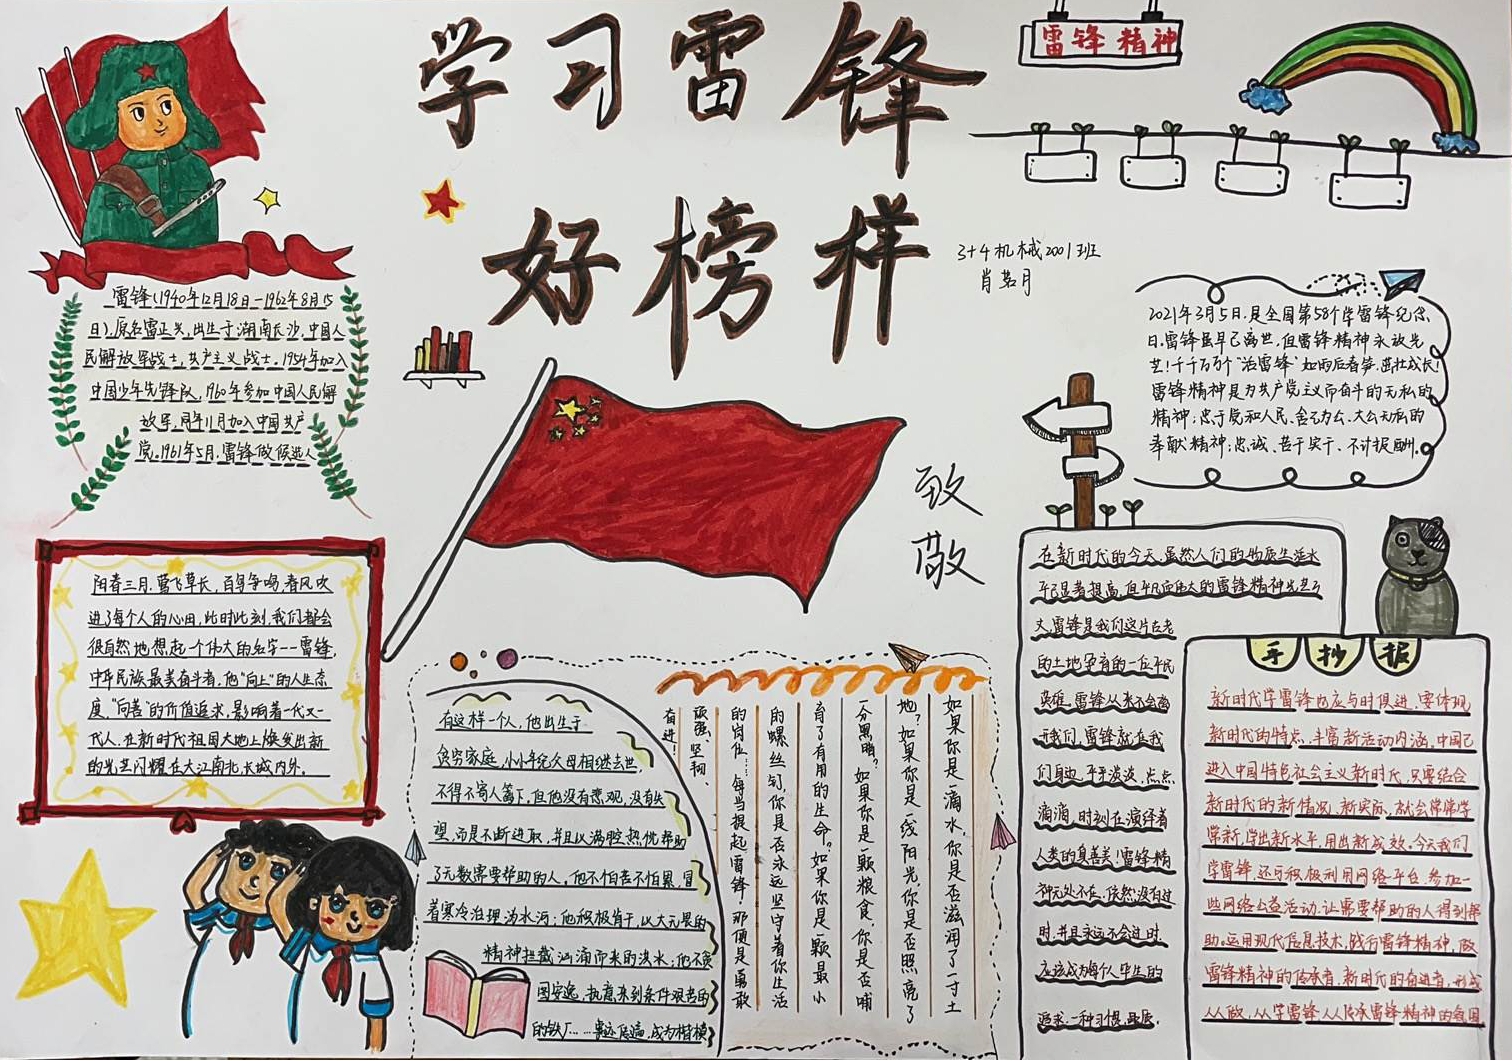 学习雷锋
好榜样
雷锋精神
3+4机械2001班
肖茗月
致敬
雷锋(1940年12月18日-1962年8月15
日),原名雷正兴,出生于湖南长沙,中国人
民解放军战士,共产主义战士。1954年加入
中国少年先锋队,1960年参加中国人民解
放军,同年11月加入中国共产
党。1961年5月,雷锋做候选人
2021年3月5日,是全国第58个学雷锋纪念
日,雷锋虽早已离世,但雷锋精神永放光
芒!千千万万个“活雷锋”如雨后春笋,茁壮成长!
雷锋精神是为共产党主义而奋斗的无私的
精神;忠于党和人民、舍己为公、大公无私的
奉献精神;忠诚、苦于实干、不计报酬。
阳春三月,莺飞草长,百鸟争鸣,春风吹
进了每个人的心田,此时此刻,我们都会
很自然地想起一个伟大的名字--雷锋,
中华民族最美奋斗者,他“向上”的人生态
度,“向善”的价值追求,影响着一代又一
代人,在新时代祖国大地上焕发出新
的光芒闪耀在大江南北,长城内外。
有这样一个人,他出生于
贫穷家庭,小小年纪父母相继去世,
不得不寄人篱下,但他没有悲观,没有失
望,而是不断进取,并且以满腔热忱帮助
了无数需要帮助的人。他不怕苦不怕累,冒
着寒冷治理沩水河;他积极肯干,以大无畏的
精神拦截汹涌而来的洪水;他不贪
图安逸,执意来到条件艰苦的
的铁厂……事迹启遍,成为楷模
如果你是一滴水,你是否滋润了一寸土
地?如果你是一线阳光,你是否照亮了
一分黑暗?如果你是一颗粮食,你是否哺
育了有用的生命?如果你是一颗最小
的螺丝钉,你是否永远坚守着你生活
的岗位……每当提起雷锋!那便是勇敢
顽强、坚韧、
奋进!
在新时代的今天,虽然人们的物质生活水
平已显著提高,但平凡而伟大的雷锋精神光芒么
丈,雷锋是我们这片古老
的土地孕育的一位平民
英雄,雷锋从来不会离
开我们,雷锋就在我
们身边,平平淡淡,点点
滴滴,时刻在演绎着
人类的真善美!雷锋精
神无处不在,依然没有过
时,并且永远不会过时,
应该成为每个人毕生的
追求,一种习惯,品质。
手抄报
新时代学雷锋也应与时俱进,要体现
新时代的特点,丰富新活动内涵。中国已
进入中国特色社会主义新时代,只要结合
新时代的新情况、新实际,就会常读常学
常新,学出新水平,用出新成效。今天我们
学雷锋,还可积极利用网络平台,参加一
些网络公益活动,让需要帮助的人得到帮
助。运用现代信息技术,践行雷锋精神,做
雷锋精神的传承者,新时代的奋进者,形成
人人做,人人学雷锋,人人传承雷锋精神的氛围